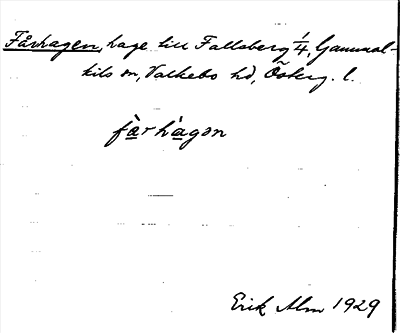 Fårhagen, hage till Fallsberg 1/4, Gammal-
kils sn, Valkebo hd, Österg. l.
få̀rhàgən
Erik Alm 1929